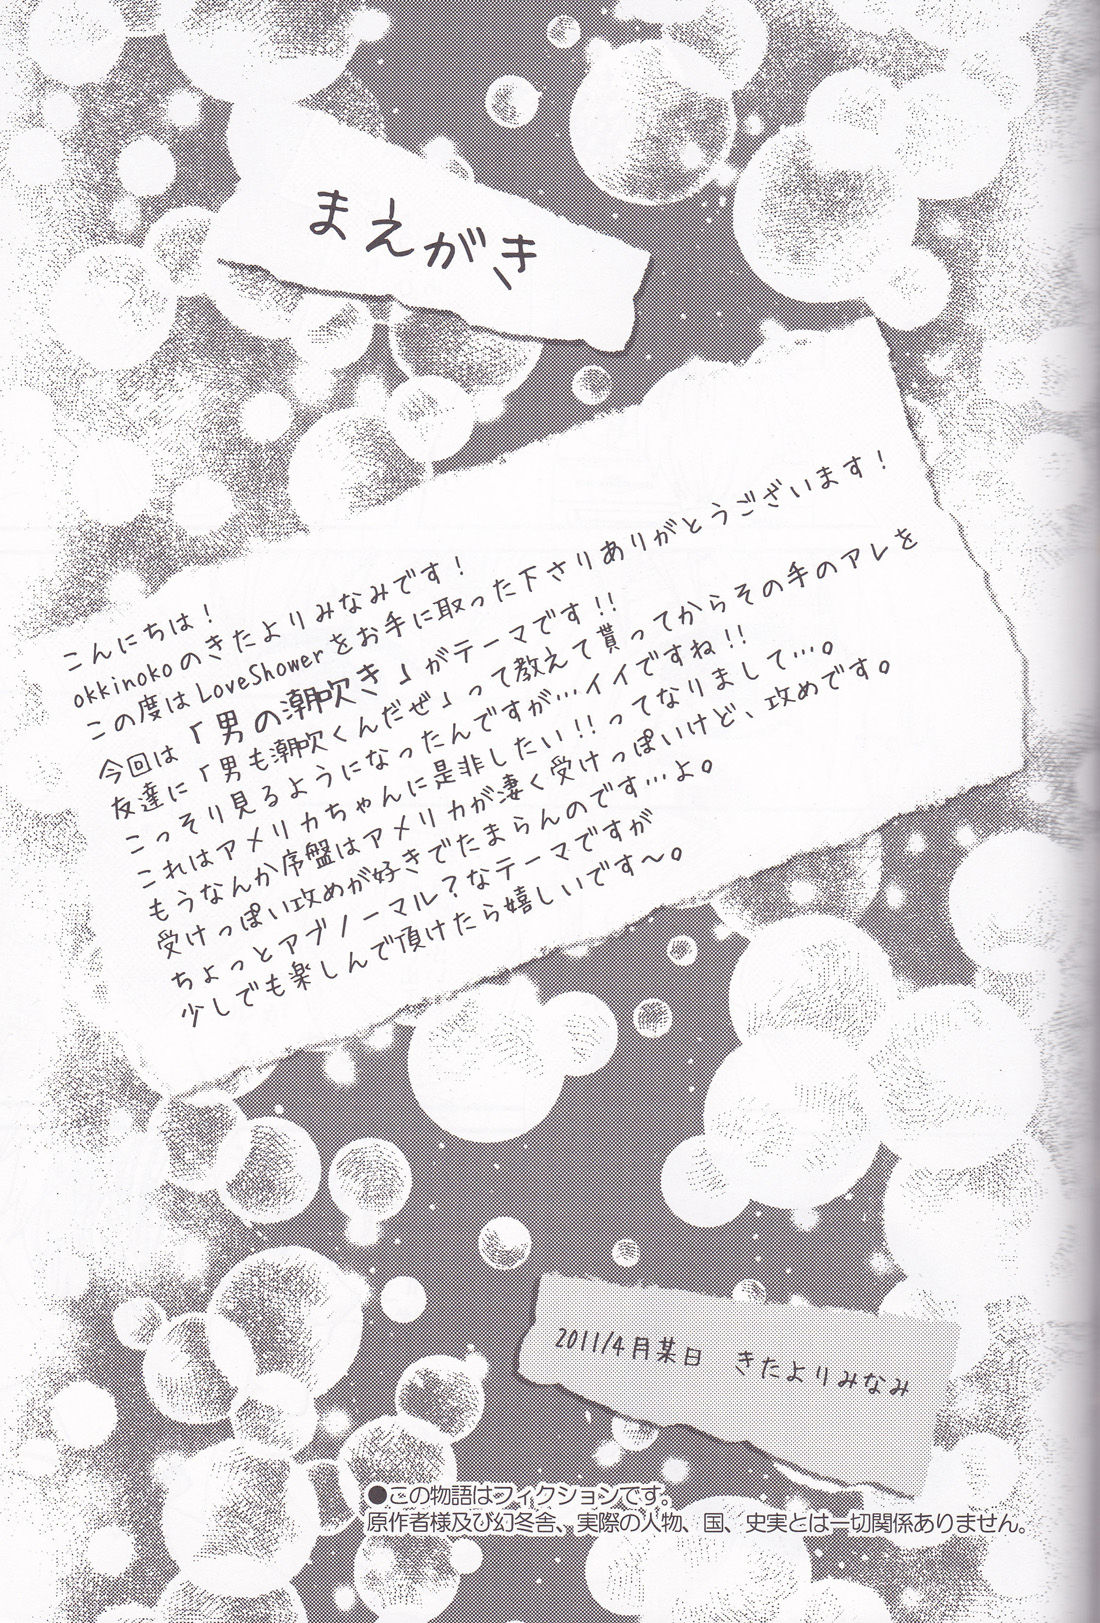 まえがき
こんにちは！
okkinokoのきたよりみなみです！
この度はLoveShowerをお手に取った下さりありがとうございます！
今回は「男の潮吹き」がテーマです!!
友達に「男も潮吹くんだぜ」って教えて貰ってからその手のアレを
こっそり見るようになったんですが…イイですね!!
これはアメリカちゃんに是非したい!!ってなりまして…。
もうなんか序盤はアメリカが凄く受けっぽいけど、攻めです。
受けっぽい攻めが好きでたまらんのです…よ。
ちょっとアブノーマル？なテーマですが
少しでも楽しんで頂けたら嬉しいです～。
2011/4月某日　きたよりみなみ
●この物語はフィクションです。
原作者様及び幻冬舎、実際の人物、国、史実とは一切関係ありません。